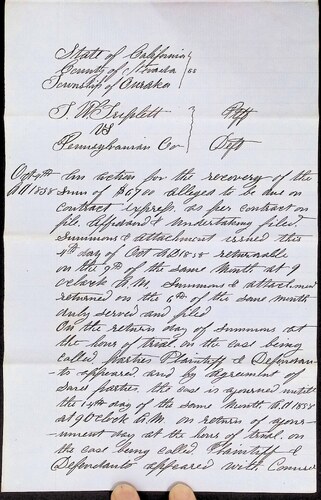 State of California
County of Nevada } ss
Township of Eureka
T. W. Triplett } Plff
vs
Pennsylvanian Co } Dfts
Oct 4th An action for the recovery of the
A.D 1858 sum of $6700 alleged to be due on
contract express, as per contract on
file. Affidavit & Undertaking filed.
Summons & attachment issued this
4th day of Oct AD 1858 returnable
on the 9th of the same Month at 9
O'clock A.M. Summons & attachment
returned on the 6th of the same month
duly served and filed
On the return day of Summons at
the hour of trial, on the case being
called parties Plaintiff & Defendan-
-ts appeared, and by agreement of
Said parties, the case is ajourned until
the 14th day of the same Month. A.D 1858
at 9 O'clock A.M. on return of ajour-
-nment day at the hour of trial, on
the case being called. Plaintiff &
Defendants appeared with Counsel